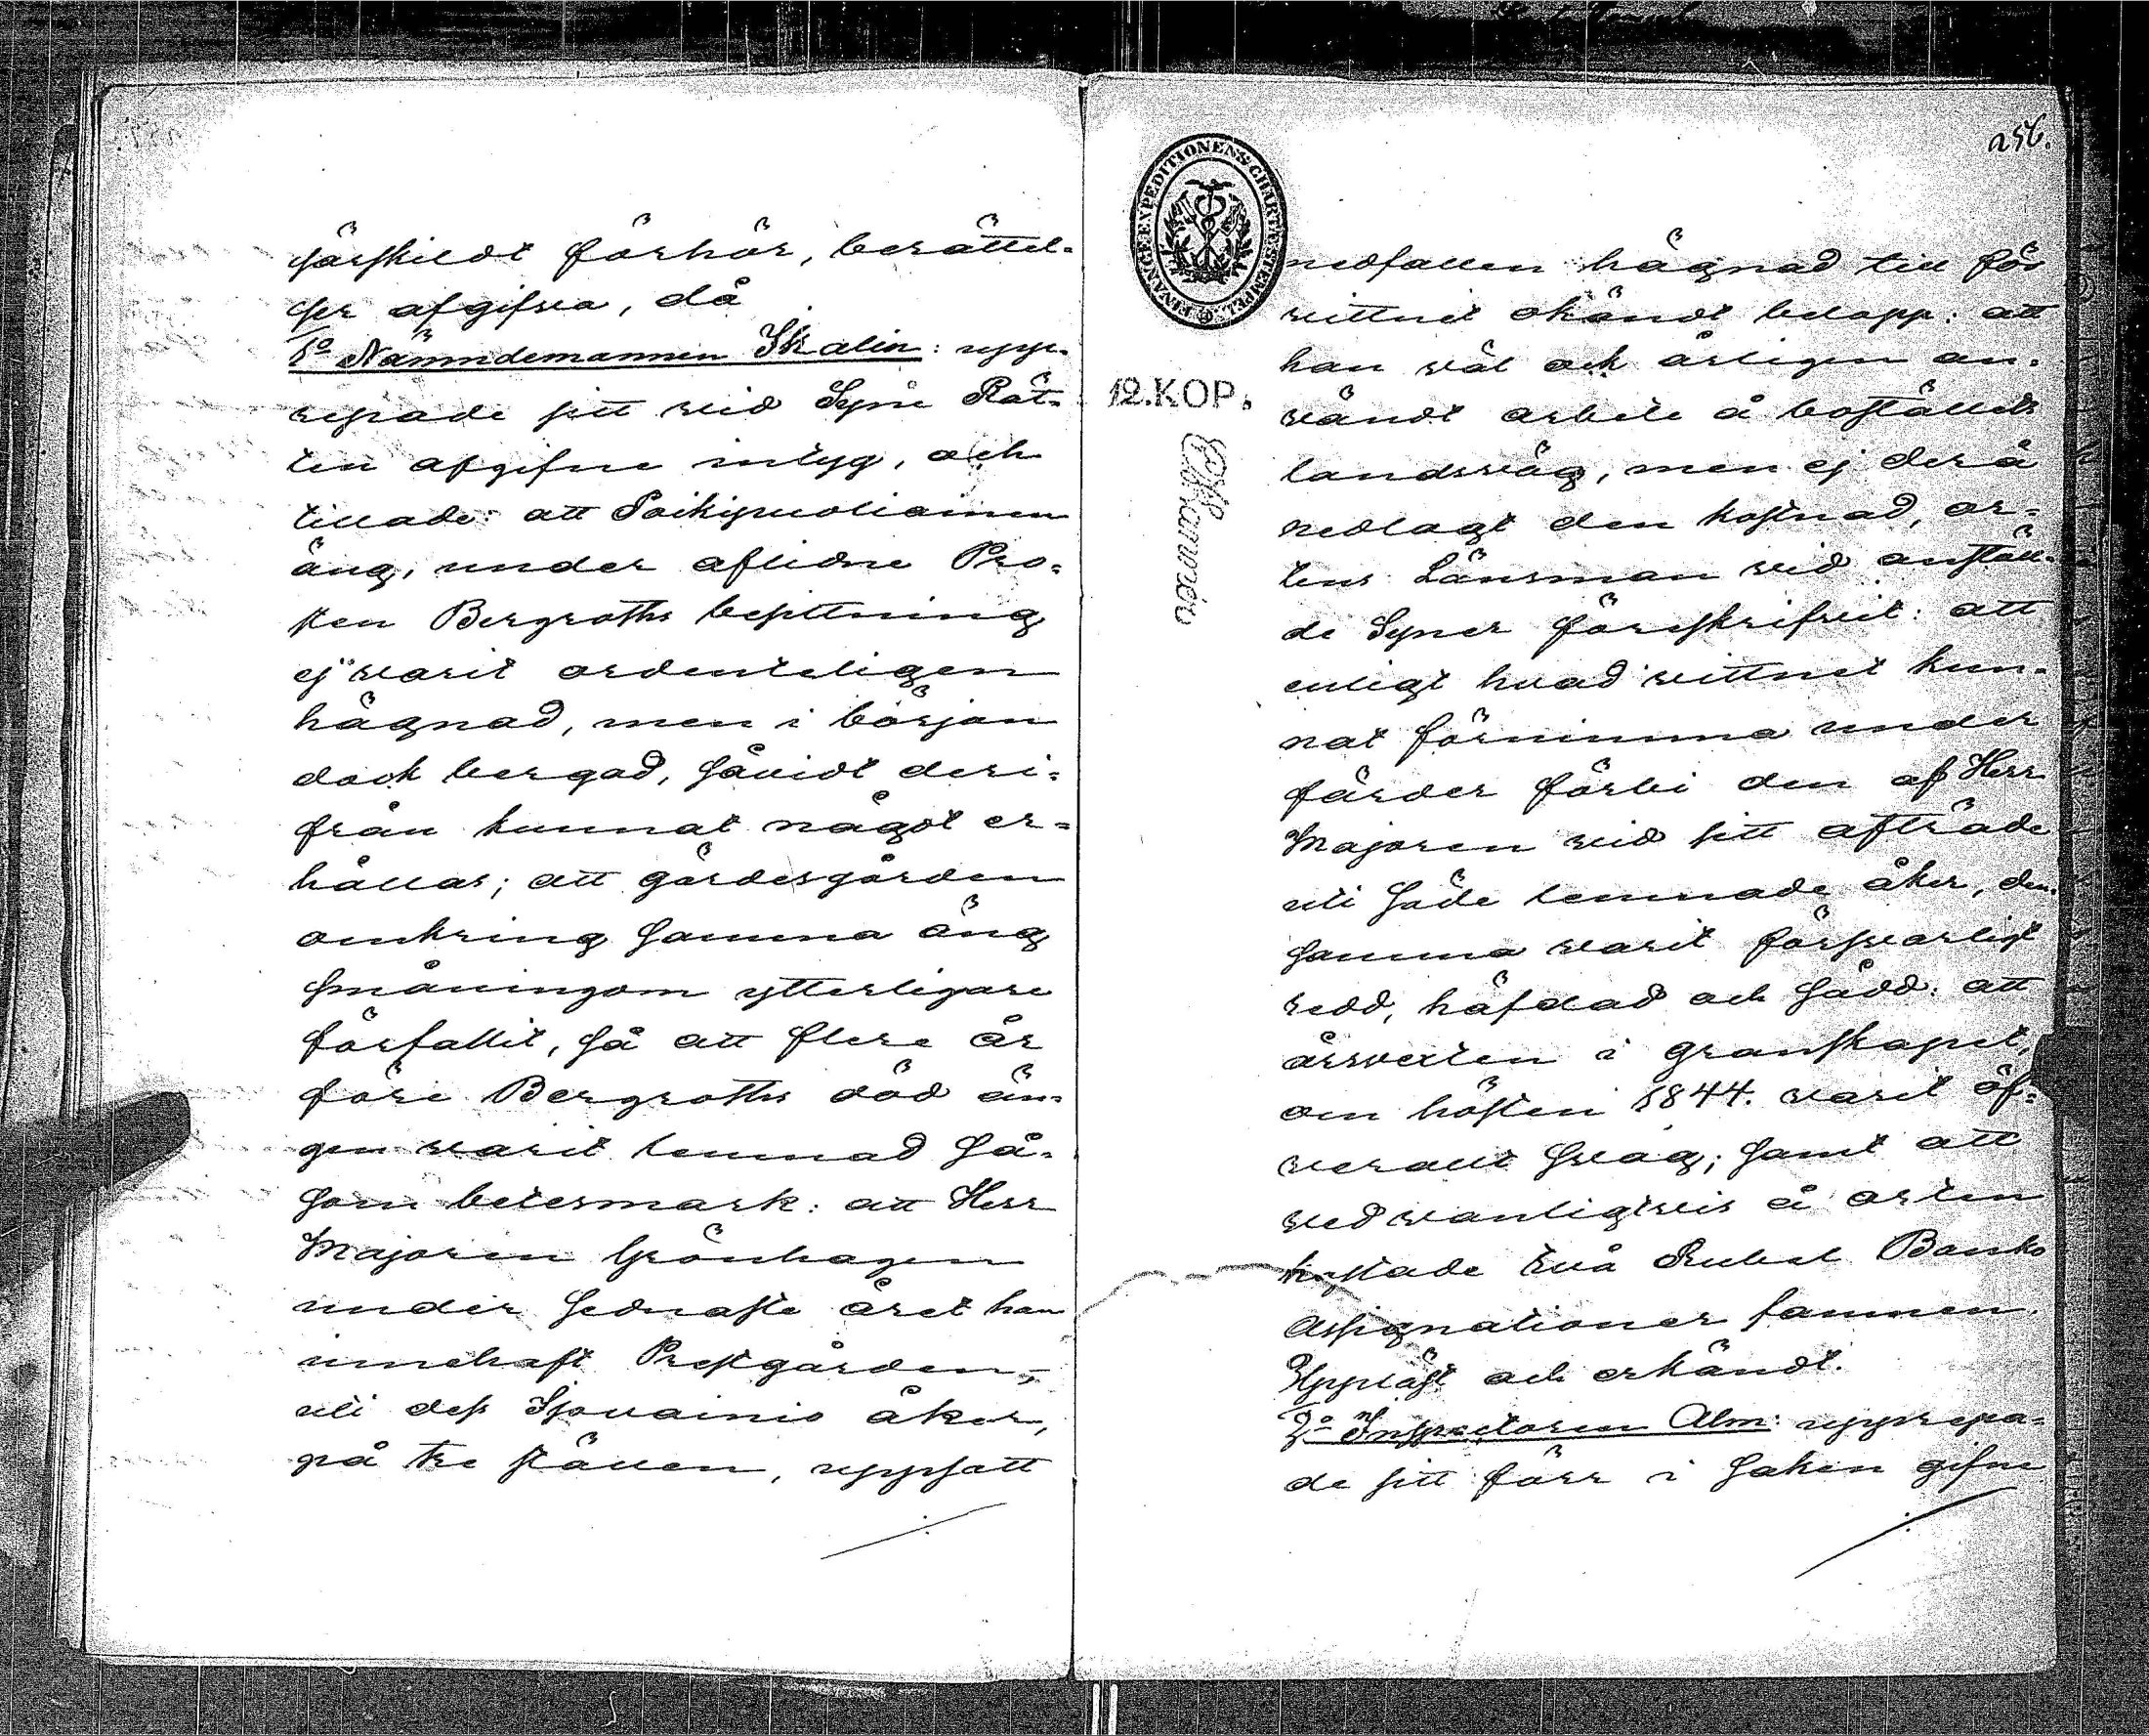 särskildt förhör, berättel-
ser afgifva, då
1o Nämndemannen Skalin: upp-
repade sitt vid Syne Rät-
ten afgifne intyg, och
tillade: att Poikipuoliainen
äng, under aflidne Pro-
sten Bergroths besittning
ej varit ordenteligen
hägnad, men i början
dock bergad, såvidt deri-
från kunnat något er-
hållas; att gärdesgården
omkring samma äng
småningom ytterligare
förfallit, så att flere år
före Bergroths död än-
gen varit lemnad så-
som betesmark: att Herr
Majoren Grönhagen
under sednaste året han
innehaft Prestgården,
uti dess Isovainio åker,
på tre ställen, uppsatt
256.
FINANCE EXPEDITIONENS CHARTÆ STEMPEL
12.KOP.
nedfallen hägnad till för
vittnet okändt belopp: att
han väl och årligen an-
vändt arbete å boställets
landsväg, men ej derå
nedlagt den kostnad, or-
tens Länsman vid anställ-
de Syner föreskrifvit: att
enligt hvad vittnet kun-
nat förnimma under
färder förbi den af Herr
Majoren vid sitt afträde
uti säde lemnade åker, den-
samma varit försvarligt
redd, häfdad och sådd: att
årsvexten i granskapet,
om hösten 1844. varit öf-
verallt svag; samt att
ved vanligtvis å orten
kostade två Rubel Banko
Assignationer famnen.
Uppläst och erkändt.
2o Inspectoren Alm: upprepa-
de sitt förr i saken gifne